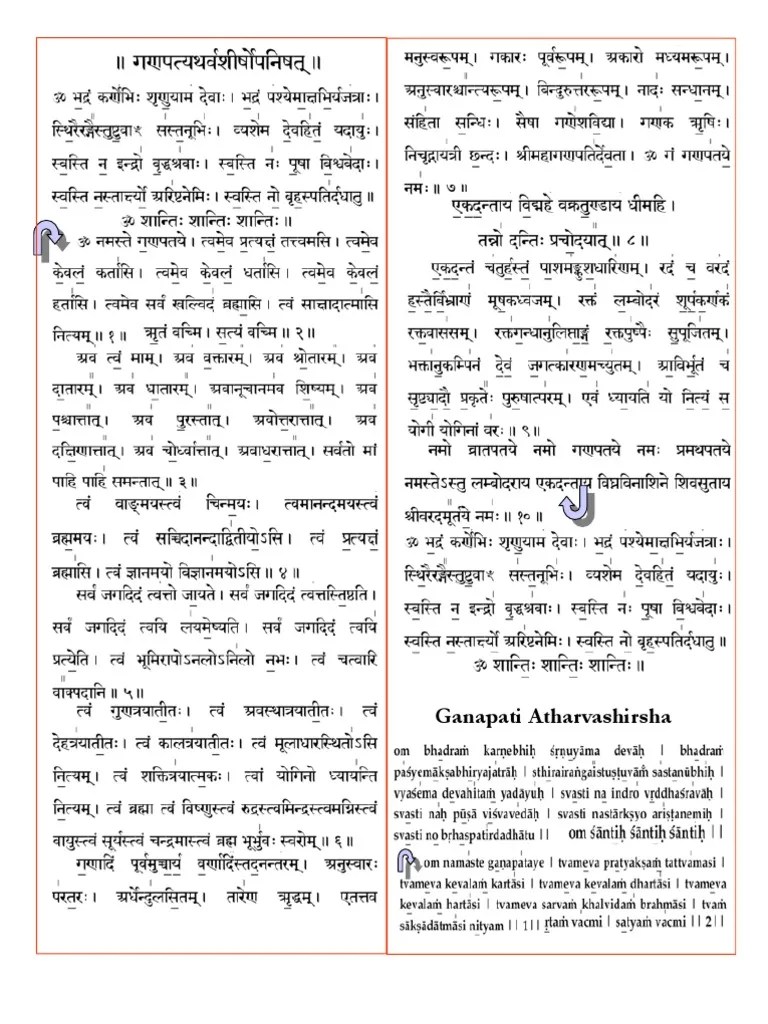 ॥ गणपत्यथर्वशीर्षोपनिषत् ॥
ॐ भद्रं कर्णेभिः शृणुयाम देवाः। भद्रं पश्येमाक्षभिर्यजत्राः।
स्थिरैरङ्गैस्तुष्टुवाꣳ सस्तनूभिः। व्यशेम देवहितं यदायुः।
स्वस्ति न इन्द्रो वृद्धश्रवाः। स्वस्ति नः पूषा विश्ववेदाः।
स्वस्ति नस्तार्क्ष्यो अरिष्टनेमिः। स्वस्ति नो बृहस्पतिर्दधातु॥
ॐ शान्तिः शान्तिः शान्तिः॥
ॐ नमस्ते गणपतये। त्वमेव प्रत्यक्षं तत्त्वमसि। त्वमेव
केवलं कर्तासि। त्वमेव केवलं धर्तासि। त्वमेव केवलं
हर्तासि। त्वमेव सर्वं खल्विदं ब्रह्मासि। त्वं साक्षादात्मासि
नित्यम्॥ १॥ ऋतं वच्मि। सत्यं वच्मि॥ २॥
अव त्वं माम्। अव वक्तारम्। अव श्रोतारम्। अव
दातारम्। अव धातारम्। अवानूचानमव शिष्यम्। अव
पश्चात्तात्। अव पुरस्तात्। अवोत्तरात्तात्। अव
दक्षिणात्तात्। अव चोर्ध्वात्तात्। अवाधरात्तात्। सर्वतो मां
पाहि पाहि समन्तात्॥ ३॥
त्वं वाङ्मयस्त्वं चिन्मयः। त्वमानन्दमयस्त्वं
ब्रह्ममयः। त्वं सच्चिदानन्दाद्वितीयोऽसि। त्वं प्रत्यक्षं
ब्रह्मासि। त्वं ज्ञानमयो विज्ञानमयोऽसि॥ ४॥
सर्वं जगदिदं त्वत्तो जायते। सर्वं जगदिदं त्वत्तस्तिष्ठति।
सर्वं जगदिदं त्वयि लयमेष्यति। सर्वं जगदिदं त्वयि
प्रत्येति। त्वं भूमिरापोऽनलोऽनिलो नभः। त्वं चत्वारि
वाक्पदानि॥ ५॥
त्वं गुणत्रयातीतः। त्वं अवस्थात्रयातीतः। त्वं
देहत्रयातीतः। त्वं कालत्रयातीतः। त्वं मूलाधारस्थितोऽसि
नित्यम्। त्वं शक्तित्रयात्मकः। त्वां योगिनो ध्यायन्ति
नित्यम्। त्वं ब्रह्मा त्वं विष्णुस्त्वं रुद्रस्त्वमिन्द्रस्त्वमग्निस्त्वं
वायुस्त्वं सूर्यस्त्वं चन्द्रमास्त्वं ब्रह्म भूर्भुवः स्वरोम्॥ ६॥
गणादिं पूर्वमुच्चार्य वर्णादिंस्तदनन्तरम्। अनुस्वारः
परतरः। अर्धेन्दुलसितम्। तारेण ऋद्धम्। एतत्तव
मनुस्वरूपम्। गकारः पूर्वरूपम्। अकारो मध्यमरूपम्।
अनुस्वारश्चान्त्यरूपम्। बिन्दुरुत्तररूपम्। नादः सन्धानम्।
संहिता सन्धिः। सैषा गणेशविद्या। गणक ऋषिः।
निचृद्गायत्री छन्दः। श्रीमहागणपतिर्देवता। ॐ गं गणपतये
नमः॥ ७॥
एकदन्ताय विद्महे वक्रतुण्डाय धीमहि।
तन्नो दन्तिः प्रचोदयात्॥ ८॥
एकदन्तं चतुर्हस्तं पाशमङ्कुशधारिणम्। रदं च वरदं
हस्तैर्बिभ्राणं मूषकध्वजम्। रक्तं लम्बोदरं शूर्पकर्णकं
रक्तवाससम्। रक्तगन्धानुलिप्ताङ्गं रक्तपुष्पैः सुपूजितम्।
भक्तानुकम्पिनं देवं जगत्कारणमच्युतम्। आविर्भूतं च
सृष्ट्यादौ प्रकृतेः पुरुषात्परम्। एवं ध्यायति यो नित्यं स
योगी योगिनां वरः॥ ९॥
नमो व्रातपतये नमो गणपतये नमः प्रमथपतये
नमस्तेऽस्तु लम्बोदराय एकदन्ताय विघ्नविनाशिने शिवसुताय
श्रीवरदमूर्तये नमः॥ १०॥
ॐ भद्रं कर्णेभिः शृणुयाम देवाः। भद्रं पश्येमाक्षभिर्यजत्राः।
स्थिरैरङ्गैस्तुष्टुवाꣳ सस्तनूभिः। व्यशेम देवहितं यदायुः।
स्वस्ति न इन्द्रो वृद्धश्रवाः। स्वस्ति नः पूषा विश्ववेदाः।
स्वस्ति नस्तार्क्ष्यो अरिष्टनेमिः। स्वस्ति नो बृहस्पतिर्दधातु॥
ॐ शान्तिः शान्तिः शान्तिः॥
Ganapati Atharvashirsha
om bhadraṁ karṇebhiḥ śṛṇuyāma devāḥ | bhadraṁ
paśyemākṣabhiryajatrāḥ | sthirairaṅgaistuṣṭuvāṁ sastanūbhiḥ |
vyaśema devahitaṁ yadāyuḥ | svasti na indro vṛddhaśravāḥ |
svasti naḥ pūṣā viśvavedāḥ | svasti nastārkṣyo ariṣṭanemiḥ |
svasti no bṛhaspatirdadhātu || om śāntiḥ śāntiḥ śāntiḥ ||
om namaste gaṇapataye | tvameva pratyakṣaṁ tattvamasi |
tvameva kevalaṁ kartāsi | tvameva kevalaṁ dhartāsi | tvameva
kevalaṁ hartāsi | tvameva sarvaṁ khalvidaṁ brahmāsi | tvaṁ
sākṣādātmāsi nityam ||1|| ṛtaṁ vacmi | satyaṁ vacmi ||2||